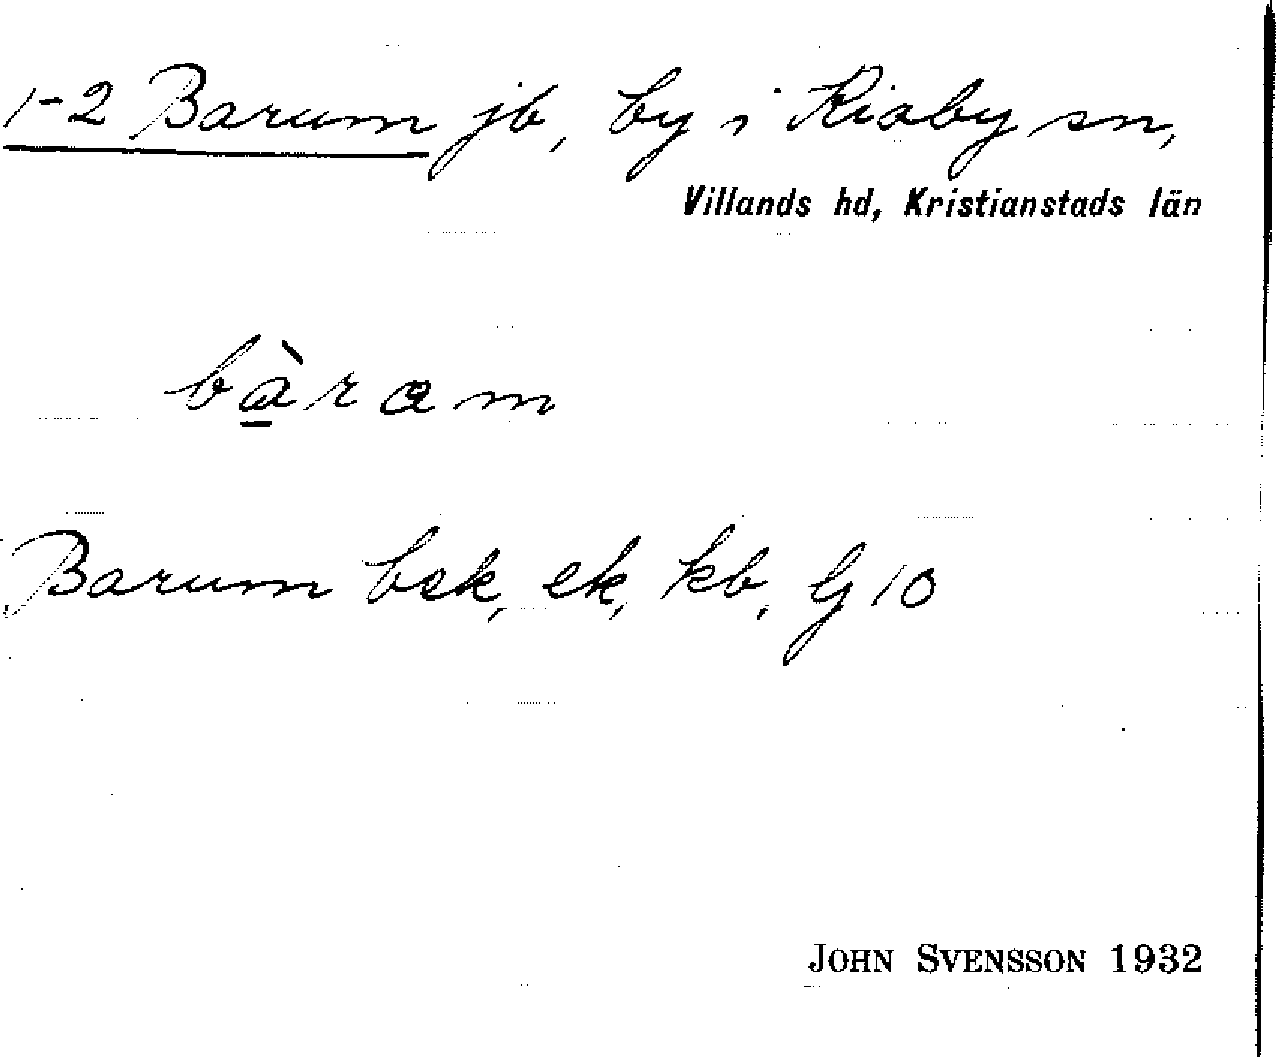 1-2 Barum jb, by i Kiaby sn,
Villands hd, Kristianstads län
bàram
Barum bsk, ek, kb, G 10
JOHN SVENSSON 1932